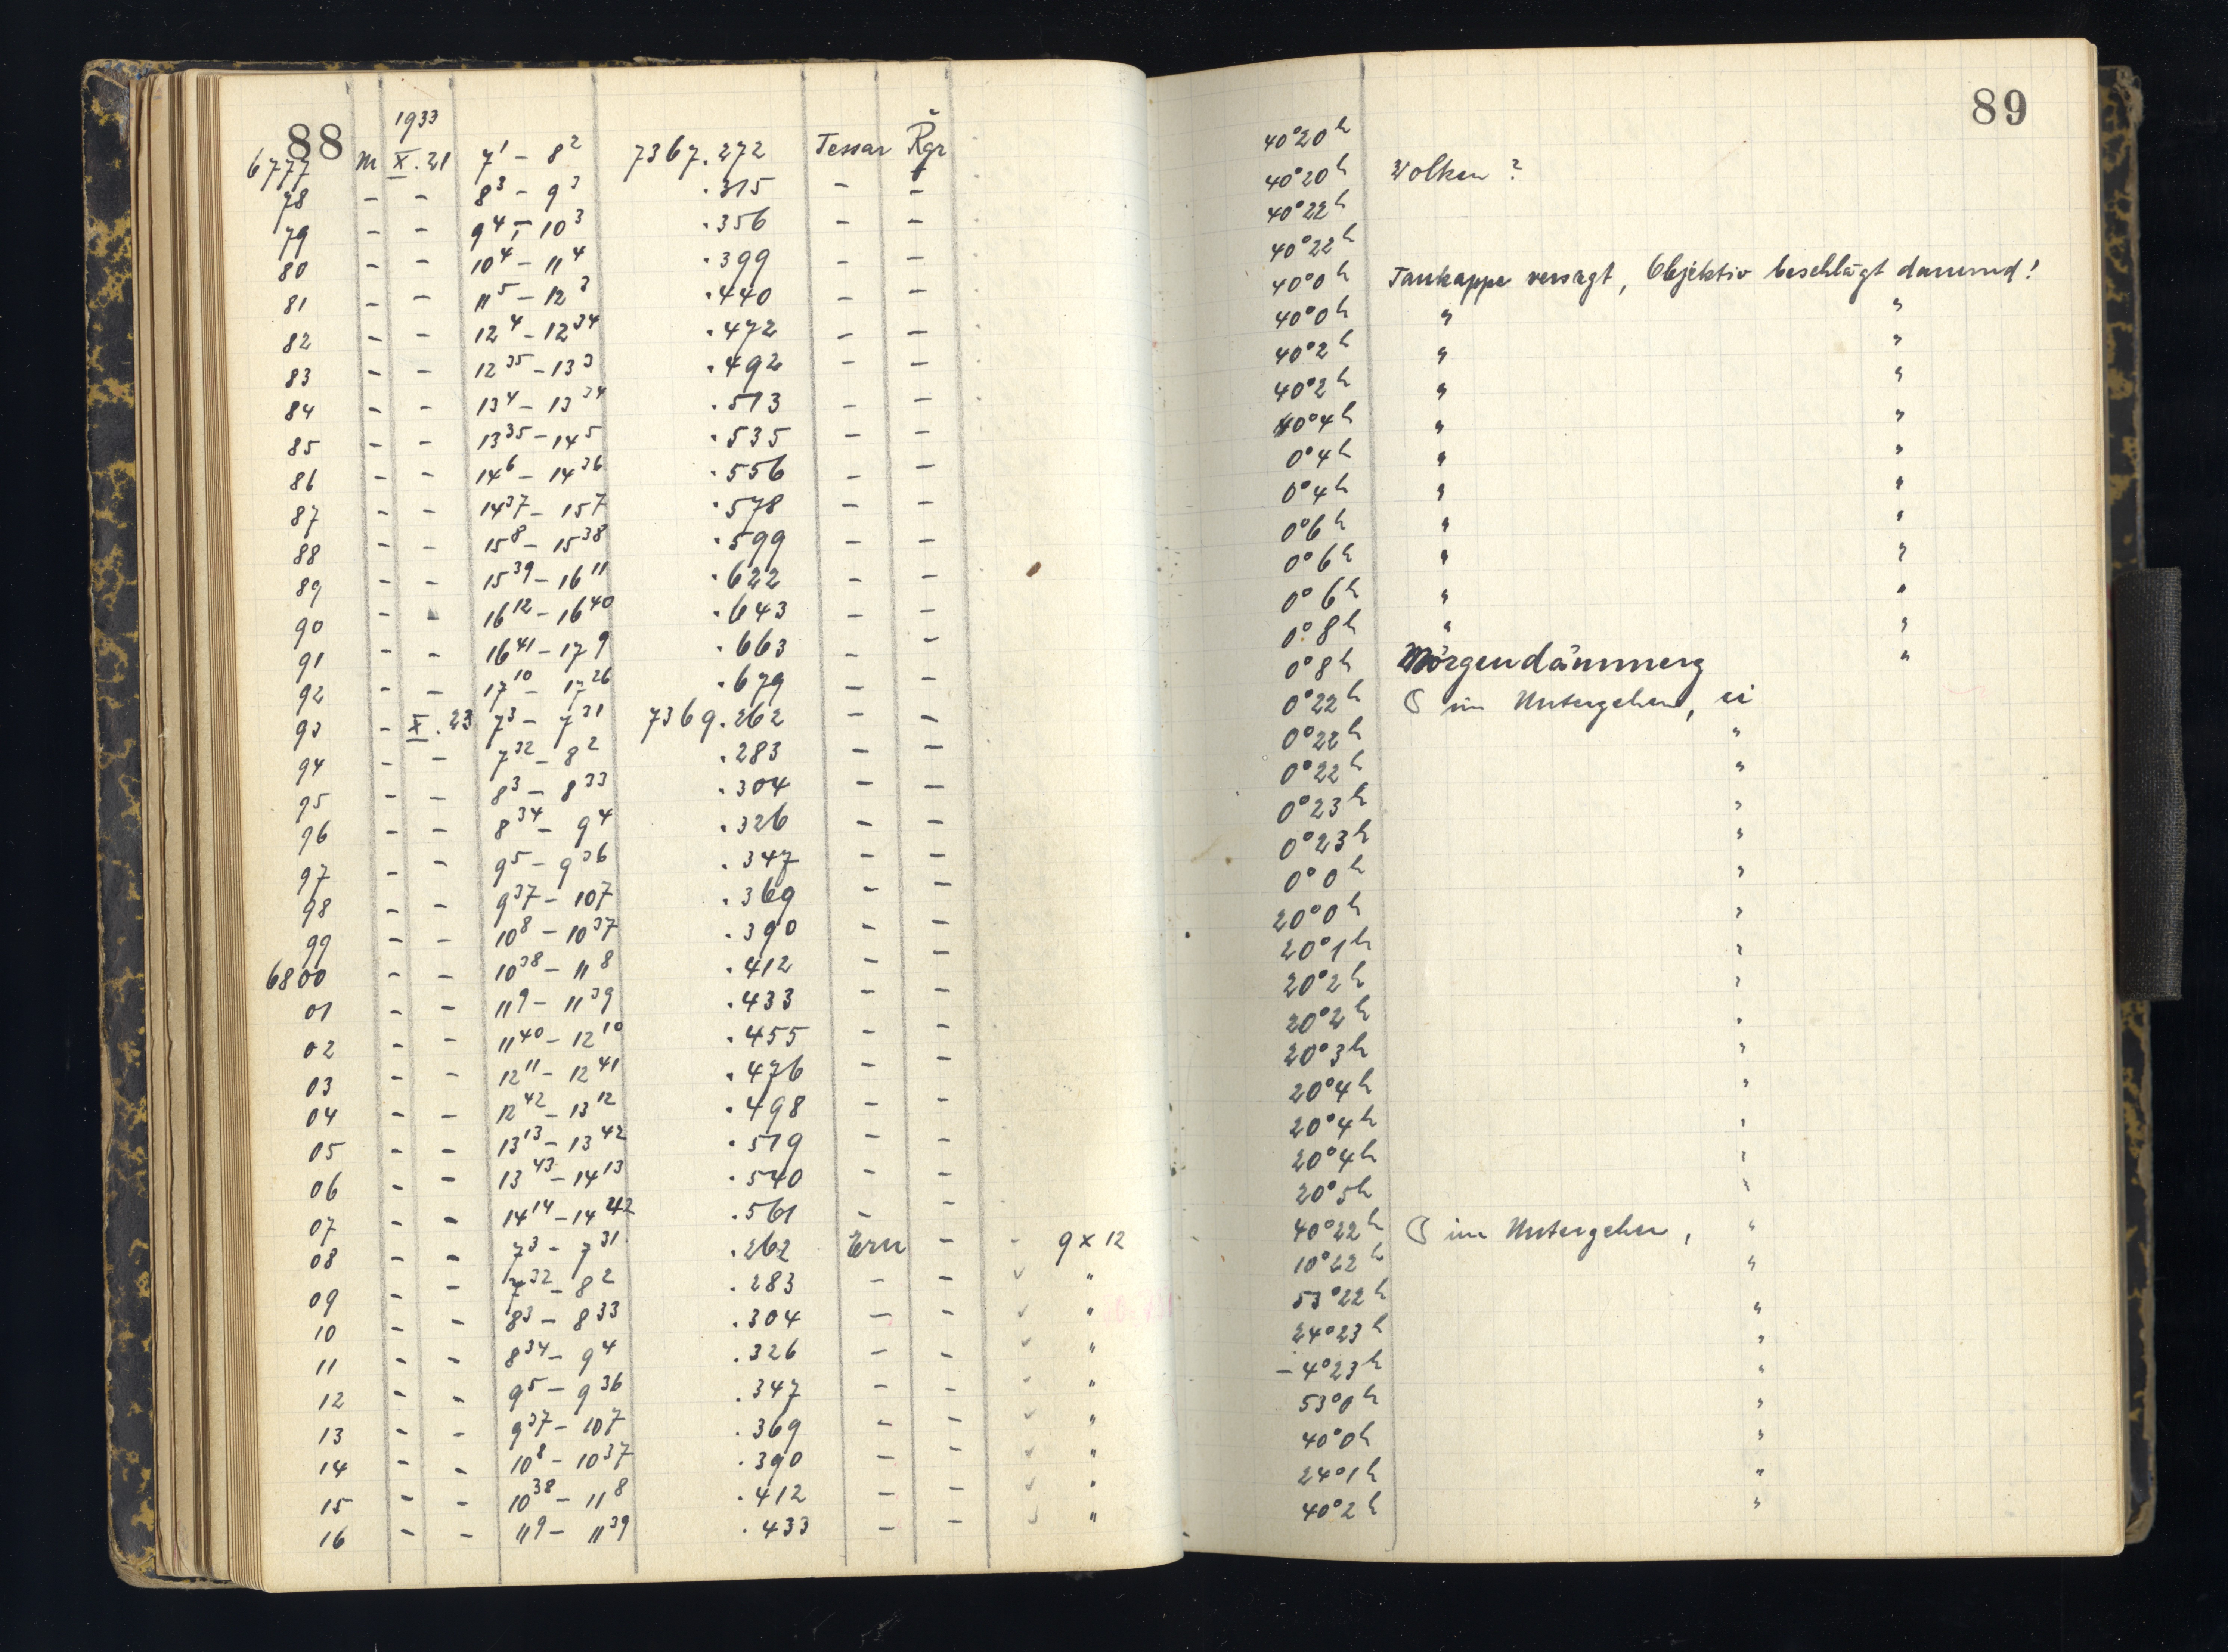 88
1933
6777 M X.21 7¹ – 8² 7367.272 Tessar Řgr
78 – – 8³ – 9³ .315 – –
79 – – 9⁴ – 10³ .356 – –
80 – – 10⁴ – 11⁴ .399 – –
81 – – 11⁵ – 12³ .440 – –
82 – – 12⁴ – 12³⁴ .472 – –
83 – – 12³⁵ – 13³ .492 – –
84 – – 13⁴ – 13³⁴ .513 – –
85 – – 13³⁵ – 14⁵ .535 – –
86 – – 14⁶ – 14³⁶ .556 – –
87 – – 14³⁷ – 15⁷ .578 – –
88 – – 15⁸ – 15³⁸ .599 – –
89 – – 15³⁹ – 16¹¹ .622 – –
90 – – 16¹² – 16⁴⁰ .643 – –
91 – – 16⁴¹ – 17⁹ .663 – –
92 – – 17¹⁰ – 17²⁶ .679 – –
93 – X.23 7³ – 7³¹ 7369.262 – –
94 – – 7³² – 8² .283 – –
95 – – 8³ – 8³³ .304 – –
96 – – 8³⁴ – 9⁴ .326 – –
97 – – 9⁵ – 9³⁶ .347 – –
98 – – 9³⁷ – 10⁷ .369 – –
99 – – 10⁸ – 10³⁷ .390 – –
6800 – – 10³⁸ – 11⁸ .412 – –
01 – – 11⁹ – 11³⁹ .433 – –
02 – – 11⁴⁰ – 12¹⁰ .455 – –
03 – – 12¹¹ – 12⁴¹ .476 – –
04 – – 12⁴² – 13¹² .498 – –
05 – – 13¹³ – 13⁴² .519 – –
06 – – 13⁴³ – 14¹³ .540 – –
07 – – 14¹⁴ – 14⁴² .561 – –
08 – – 7³ – 7³¹ .262 Ern – – 9 x 12
09 – – 7³² – 8² .283 – – ✓ "
10 – – 8³ – 8³³ .304 – – ✓ "
11 – – 8³⁴ – 9⁴ .326 – – ✓ "
12 – – 9⁵ – 9³⁶ .347 – – ✓ "
13 – – 9³⁷ – 10⁷ .369 – – ✓ "
14 – – 10⁸ – 10³⁷ .390 – – ✓ "
15 – – 10³⁸ – 11⁸ .412 – – ✓ "
16 – – 11⁹ – 11³⁹ .433 – – ✓ "
89
40°20ʰ
40°20ʰ Wolken ?
40°22ʰ
40°22ʰ
40°0ʰ Taukappe versagt, Objektiv beschlägt dauernd!
40°0ʰ " "
40°2ʰ " "
40°2ʰ " "
40°4ʰ " "
0°4ʰ " "
0°4ʰ " "
0°6ʰ " "
0°6ʰ " "
0°6ʰ " "
0°8ʰ " "
0°8ʰ Morgendämmerg "
0°22ʰ ☾ im Untergehen,
0°22ʰ "
0°22ʰ "
0°23ʰ "
0°23ʰ "
0°0ʰ "
20°0ʰ "
20°1ʰ "
20°2ʰ "
20°2ʰ "
20°3ʰ "
20°4ʰ "
20°4ʰ "
20°4ʰ "
20°5ʰ "
40°22ʰ ☾ im Untergehen, "
10°22ʰ "
53°22ʰ "
24°23ʰ "
–4°23ʰ "
53°0ʰ "
40°0ʰ "
24°1ʰ "
40°2ʰ "